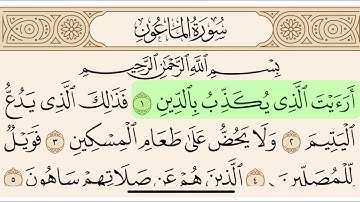 سُورَةُ المَاعُونِ
بِسْمِ اللَّهِ الرَّحْمَٰنِ الرَّحِيمِ
أَرَءَيْتَ الَّذِي يُكَذِّبُ بِالدِّينِ ١ فَذَٰلِكَ الَّذِي يَدُعُّ
الْيَتِيمَ ٢ وَلَا يَحُضُّ عَلَىٰ طَعَامِ الْمِسْكِينِ ٣ فَوَيْلٌ
لِّلْمُصَلِّينَ ٤ الَّذِينَ هُمْ عَن صَلَاتِهِمْ سَاهُونَ ٥